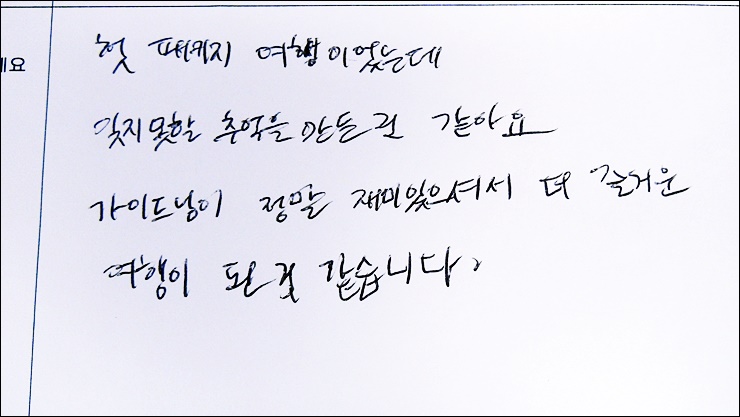 첫 패키지 여행이었는데
네요
잊지못할 추억을 만든 것 같아요
가이드님이 정말 재미있으셔서 더 즐거운
여행이 된 것 같습니다.